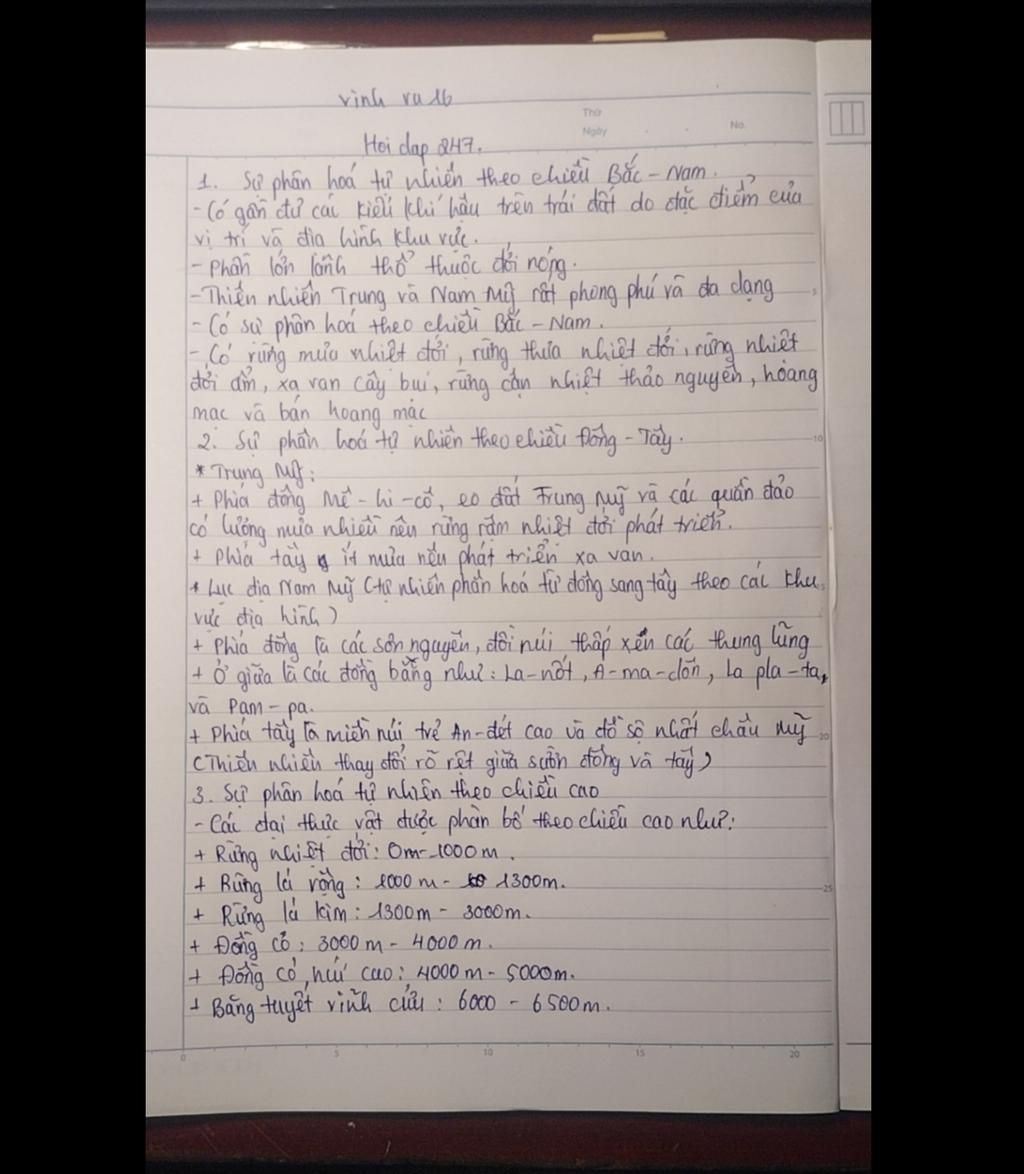 vinh vu 16
Thứ
Ngày
No.
Hoi dap 247.
1. Sự phân hoá tự nhiên theo chiều Bắc - Nam.
- Có gần đủ các kiểu khí hậu trên trái đất do đặc điểm của
vị trí và địa hình khu vực.
- Phần lớn lãnh thổ thuộc đới nóng.
- Thiên nhiên Trung và Nam Mỹ rất phong phú và đa dạng
5
- Có sự phân hoá theo chiều Bắc - Nam.
- Có rừng mưa nhiệt đới, rừng thưa nhiệt đới, rừng nhiệt
đới ẩm, xa van cây bụi, rừng cận nhiệt thảo nguyên, hoang
mạc và bán hoang mạc
2. Sự phân hoá tự nhiên theo chiều Đông - Tây.
10
* Trung Mỹ:
+ Phía đông Mê - hi - cô, eo đất Trung Mỹ và các quần đảo
có lượng mưa nhiều nên rừng rậm nhiệt đới phát triển.
+ Phía tây ít mưa nên phát triển xa van.
* Lục địa Nam Mỹ (tự nhiên phân hoá từ đông sang tây theo các khu
vực địa hình)
+ Phía đông là các sơn nguyên, đồi núi thấp xen các thung lũng
+ Ở giữa là các đồng bằng như: La-nốt, A-ma-dôn, La pla-ta,
và Pam-pa.
+ Phía tây là miền núi trẻ An-đét cao và đồ sộ nhất châu Mỹ
20
(Thiên nhiên thay đổi rõ rệt giữa sườn đông và tây)
3. Sự phân hoá tự nhiên theo chiều cao
- Các đai thực vật được phân bố theo chiều cao như:
+ Rừng nhiệt đới: 0m-1000m.
+ Rừng lá rộng: 1000m - 1300m.
25
+ Rừng lá kim: 1300m - 3000m.
+ Đồng cỏ: 3000m - 4000m.
+ Đồng cỏ núi cao: 4000m - 5000m.
+ Băng tuyết vĩnh cửu: 6000 - 6500m.
0 5 10 15 20